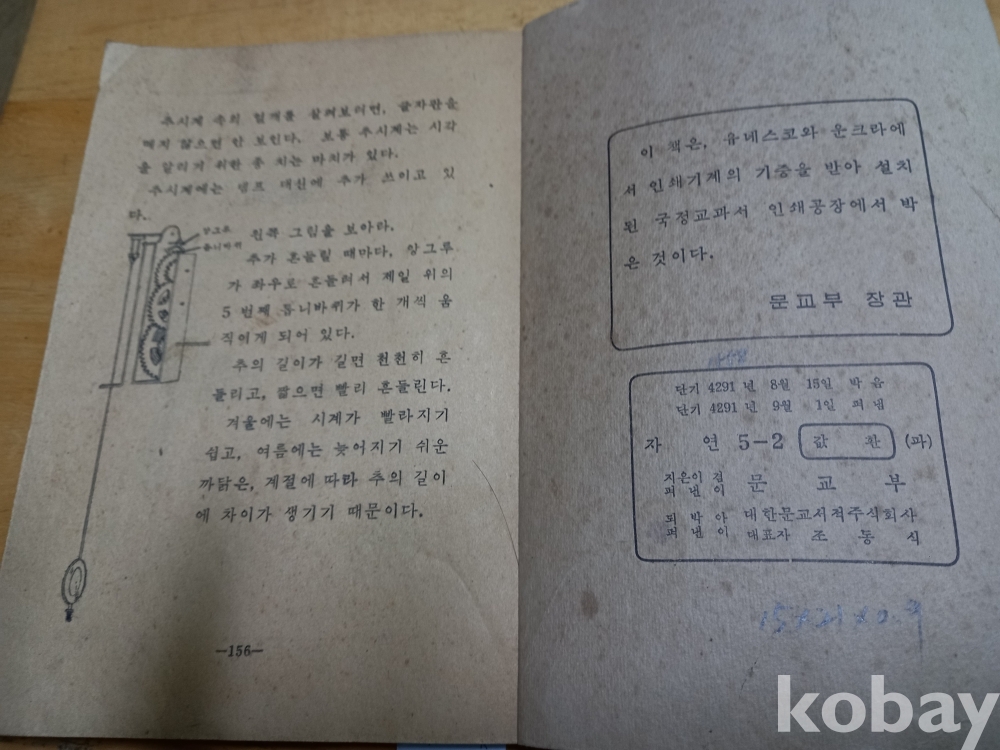 추시계 속의 얼개를 살펴보려면, 글자판을
떼지 않으면 안 보인다. 보통 추시계는 시각
을 알리기 위한 종 치는 마치가 있다.
추시계에는 템프 대신에 추가 쓰이고 있
다.
앙그루
톱니바퀴
왼쪽 그림을 보아라.
추가 흔들릴 때마다, 앙그루
가 좌우로 흔들려서 제일 위의
5 번째 톱니바퀴가 한 개씩 움
직이게 되어 있다.
추의 길이가 길면 천천히 흔
들리고, 짧으면 빨리 흔들린다.
겨울에는 시계가 빨라지기
쉽고, 여름에는 늦어지기 쉬운
까닭은, 계절에 따라 추의 길이
에 차이가 생기기 때문이다.
—156—
이 책은, 유네스코와 운크라에
서 인쇄기계의 기증을 받아 설치
된 국정교과서 인쇄공장에서 박
은 것이다.
문교부 장관
단기 4291 년 8월 15일 박음
단기 4291 년 9월 1일 펴냄
자 연 5-2 값 환 (파)
지은이 겸
펴낸이 문교부
되박아
펴낸이 대한문교서적주식회사
대표자 조동식
kobay